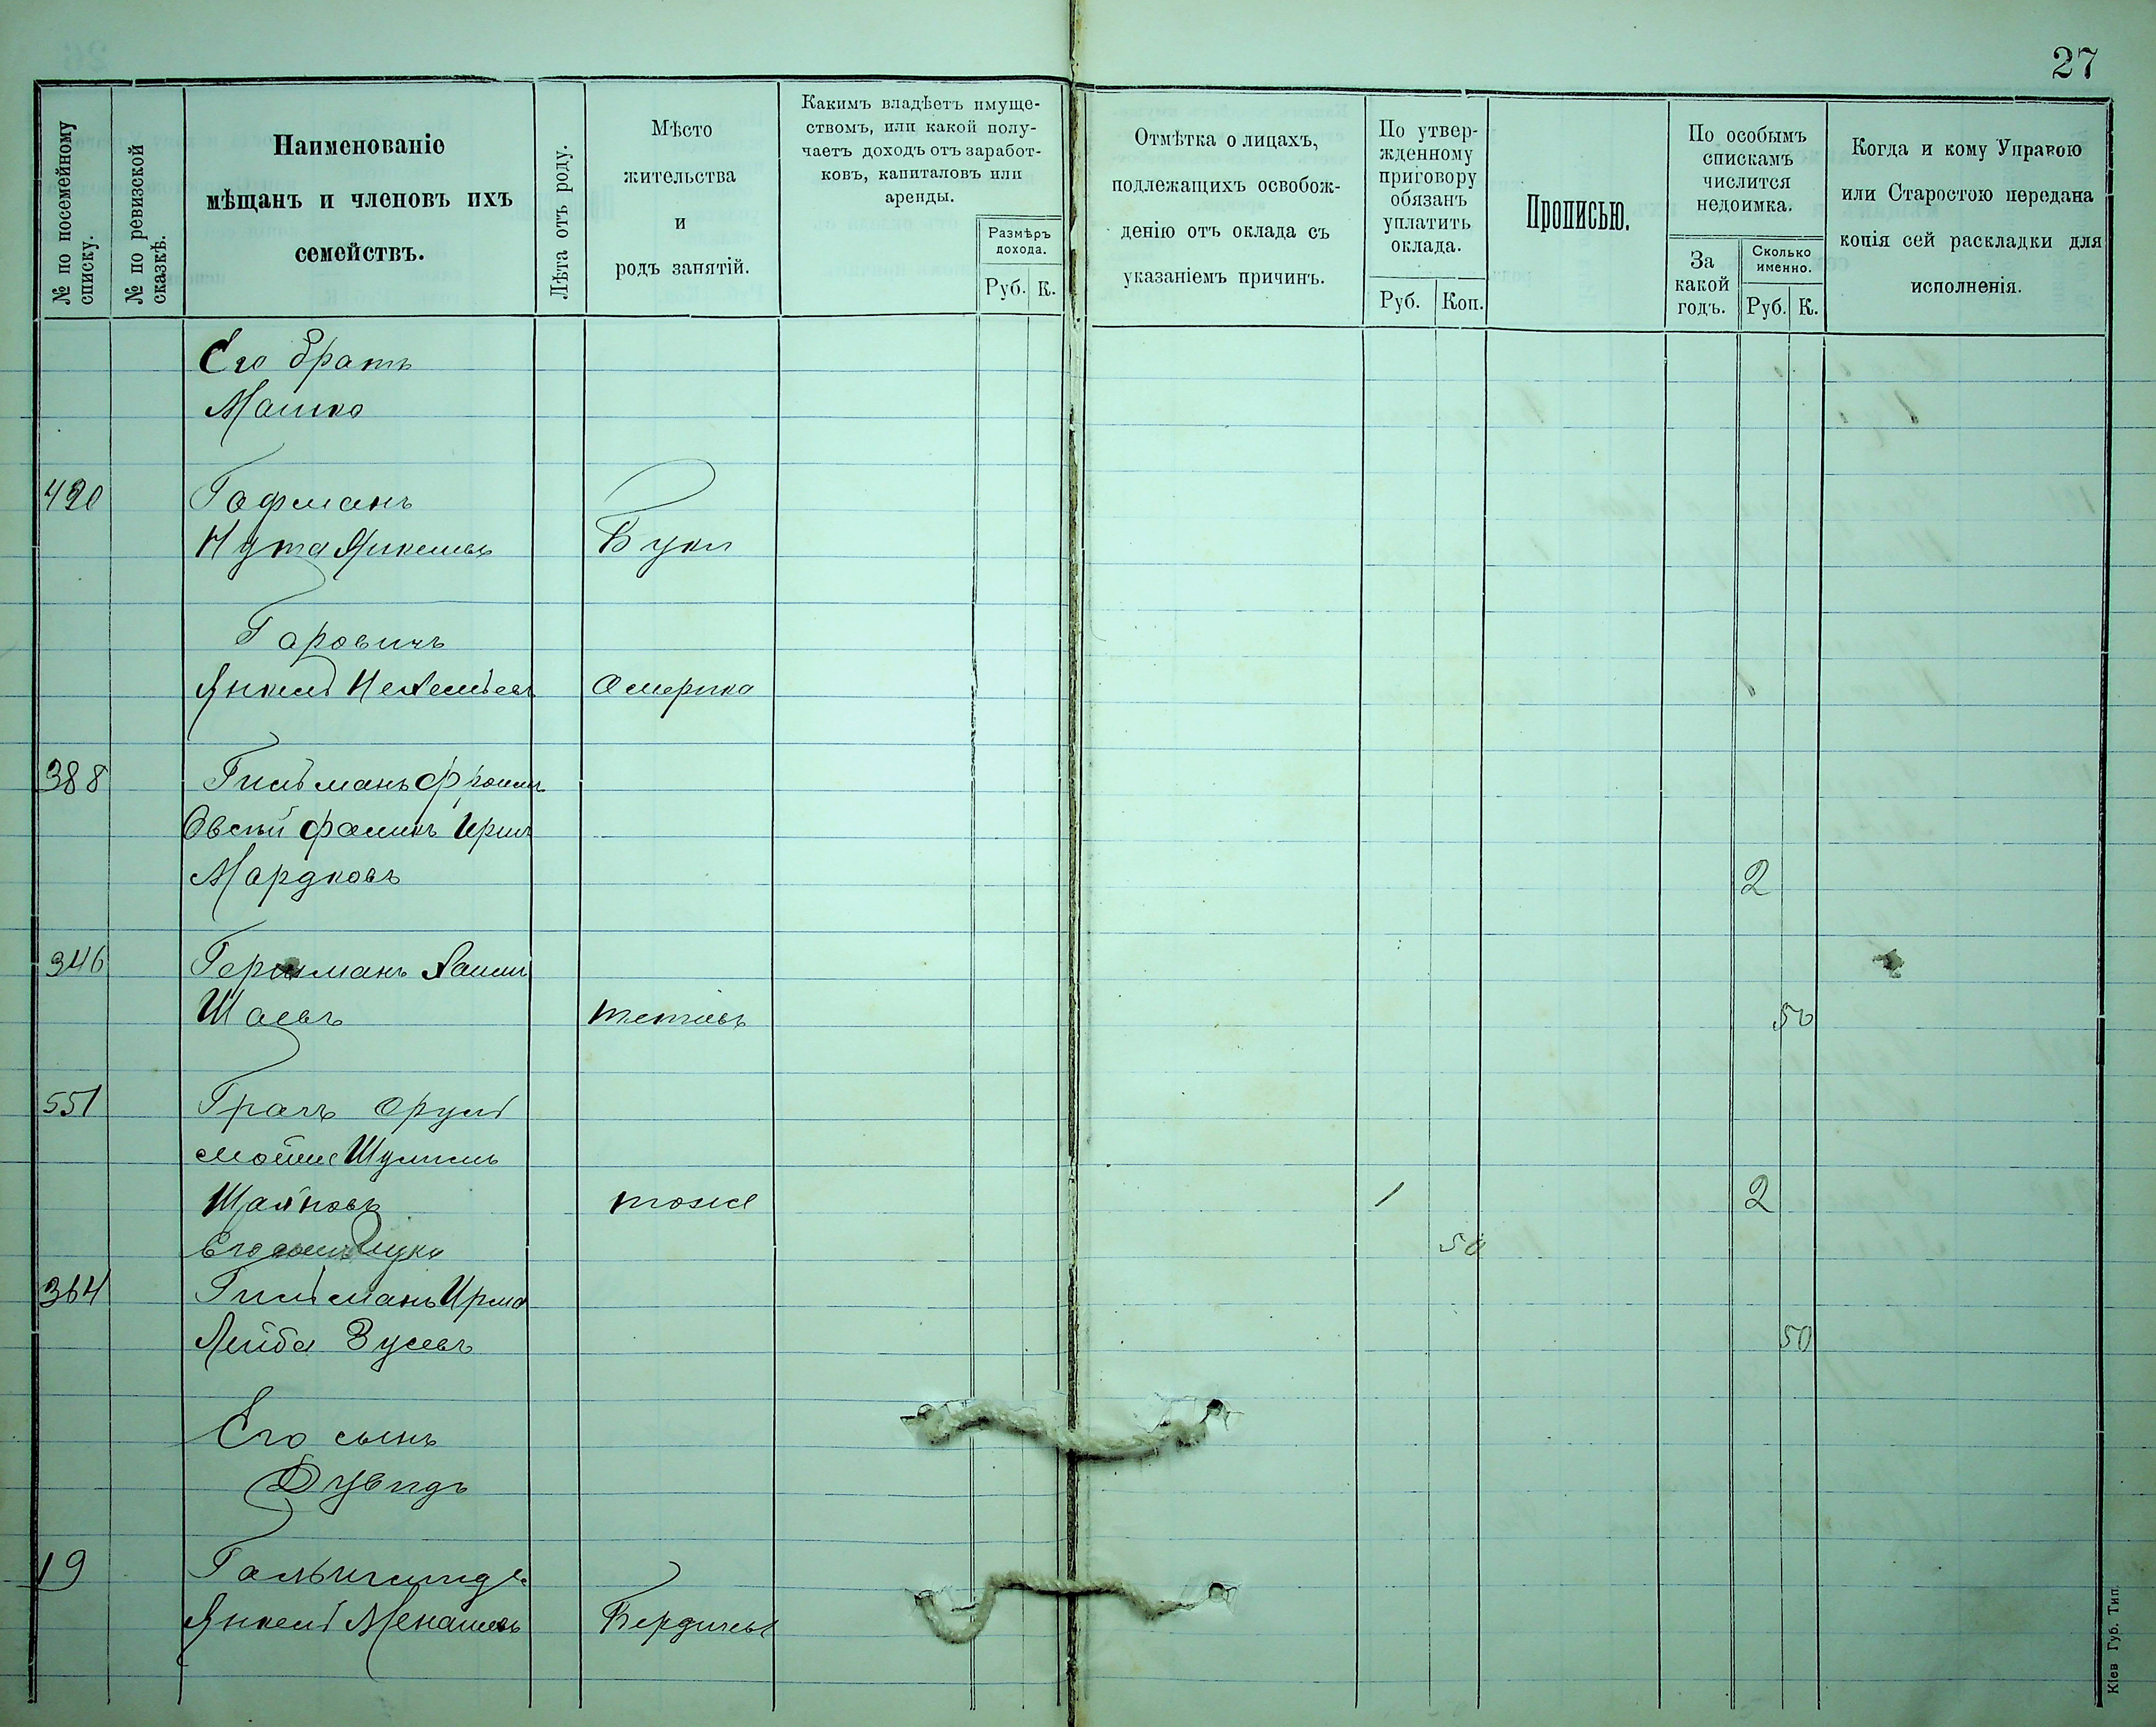 27
№ по посемейному списку.
№ по ревизской сказкѣ.
Наименованіе
мѣщанъ и членовъ ихъ
семействъ.
Лѣта отъ роду.
Мѣсто
жительства
и
родъ занятій.
Какимъ владѣетъ имуще-
ствомъ, или какой полу-
чаетъ доходъ отъ заработ-
ковъ, капиталовъ или
аренды.
Размѣръ
дохода.
Руб. К.
Отмѣтка о лицахъ,
подлежащихъ освобож-
денію отъ оклада съ
указаніемъ причинъ.
По утвер-
жденному
приговору
обязанъ
уплатить
оклада.
Руб. Коп.
Прописью.
По особымъ
спискамъ
числится
недоимка.
За
какой
годъ.
Сколько
именно.
Руб. К.
Когда и кому Управою
или Старостою передана
копія сей раскладки для
исполненія.
Его братъ
Машко
420 Гофманъ
Нута Янкелевъ Буки
Горовичъ
Янкель Америка
388 Гильманъ
Овсѣй
Мордковъ 2
346 Германъ
Шаевъ тетіевъ 50
551 Грачъ Оруль
Мойше Шулимъ
тоже 1 2
Его 50
364 Гильманъ
Лейба Зусевъ 50
Его сынъ
Дувидъ
19
Янкель Менашевъ Бердичевъ
Кіев Губ. Тип.